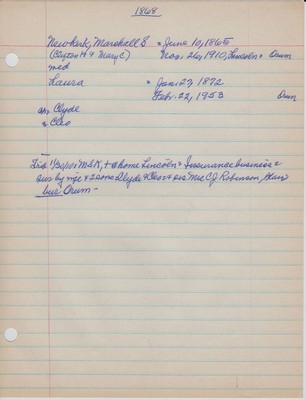 1868
Newkirk, Marshall S = June 10, 1868
(Clayton H & Mary C) Nov. 26, 1910, Lincoln Drum
med
Laura = Jan 27, 1872
Feb. 22, 1953 Drum
ch, Clyde
& Cleo
1/30/01 MSN, at home Lincoln Insurance business
sur by wife & 2 sons Clyde & Cleo & sis Mrs C J Robinson,
bur Drum -